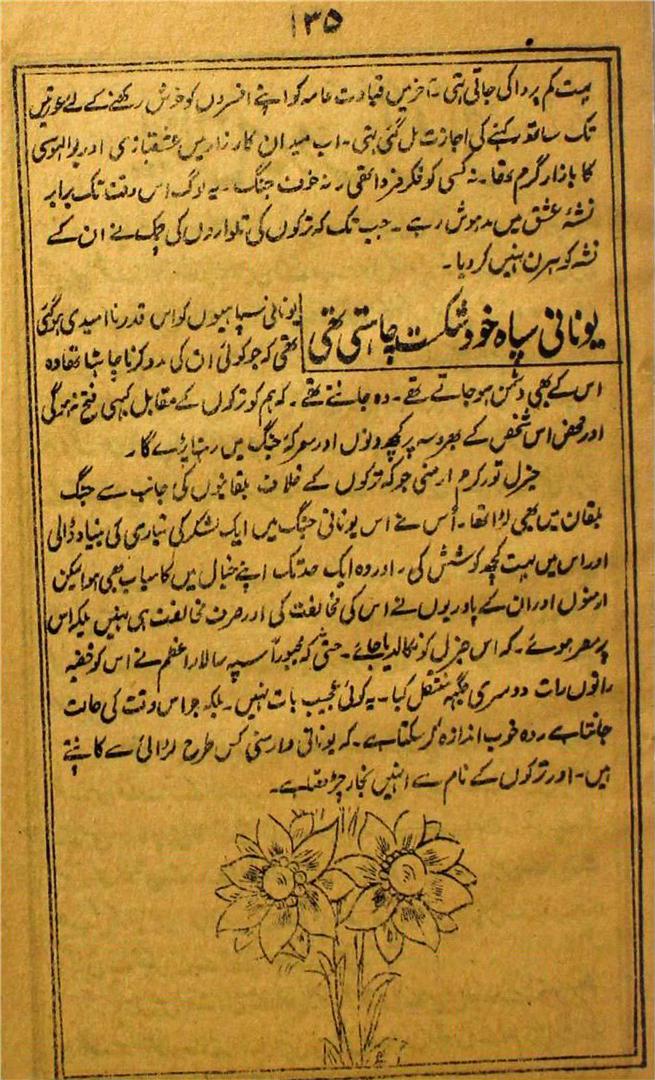 ۱۳۵
بہت کم پروا کی جاتی ہتی۔ آخر میں قیادت عامہ کو اپنے افسردں کو خوش رکھنے کے لئے عورتیں
تک ساتھ رکہنے کی اجازت مل گئی ہتی۔ اب میدان کارزار میں عشقبازی اور بوالہوسی
کا بازار گرم تھا۔ نہ کسی کو فکر فردا تھی۔ نہ خوف جنگ۔ یہ لوگ اس وقت تک برابر
نشۂ عشق میں مدہوش رہے۔ جب تک کہ ترکوں کی تلواردں کی چمک نے ان کے
نشہ کو ہرن نہیں کر دیا۔
یونانی سپاہ خود شکست چاہتی تھی
یونانی سپاہیوں کو اس قدر نا امیدی ہو گئی
تھی کہ جو کوئی ان کی مدد کرنا چاہتا تھا وہ
اس کے بھی دشمن ہو جاتے تھے۔ وہ جانتے تھے۔ کہ ہم کو ترکوں کے مقابل کبہی فتح نہ ہو گی
اور محض اس شخص کے بھروسہ پر کچھ دنوں اور معرکۂ جنگ میں رہنا پڑے گا۔
جنرل تورکوم ارمنی جو کہ ترکوں کے خلاف بلقانیوں کی جانب سے جنگ
بلقان میں بھی لڑا تھا۔ اُس نے اس یونانی جنگ میں ایک لشکر کی تیاری کی بنیاد ڈالی
اور اس میں بہت کچھ کوشش کی۔ اور وہ ایک حد تک اپنے خیال میں کامیاب بھی ہوا لیکن
ارمنوں اور ان کے پادریوں نے اس کی مخالفت کی اور صرف مخالفت ہی نہیں بلکہ اس
پر مصر ہوئے۔ کہ اس جنرل کو نکالدیا جائے۔ حتیٰ کہ مجبوراً سپہ سالار اعظم نے اس کو خفیہ
راتوں رات دوسری جگہ منتقل کیا۔ یہ کوئی عجیب بات نہیں۔ بلکہ جو اس وقت کی حالت
جانتا ہے۔ وہ خوب اندازہ کر سکتا ہے۔ کہ یونانی و ارمنی کس طرح لڑائی سے کانپتے
ہیں۔ اور ترکوں کے نام سے انہیں بخار چڑھتا ہے۔